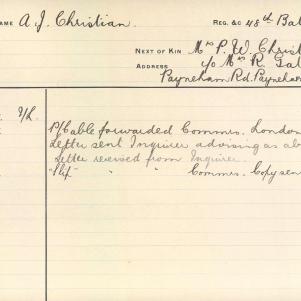 NAME A. J. Christian. REG. &C 48th Bat
NEXT OF KIN Mrs P. W. Christ
ADDRESS c/o Mrs R. Gal
Payneham Rd, Payneham
P/Cable forwarded Commrs. London
Letter sent Inquirer advising as abo
Letter received from Inquirer.
"Slip" " " Commrs. Copy sen